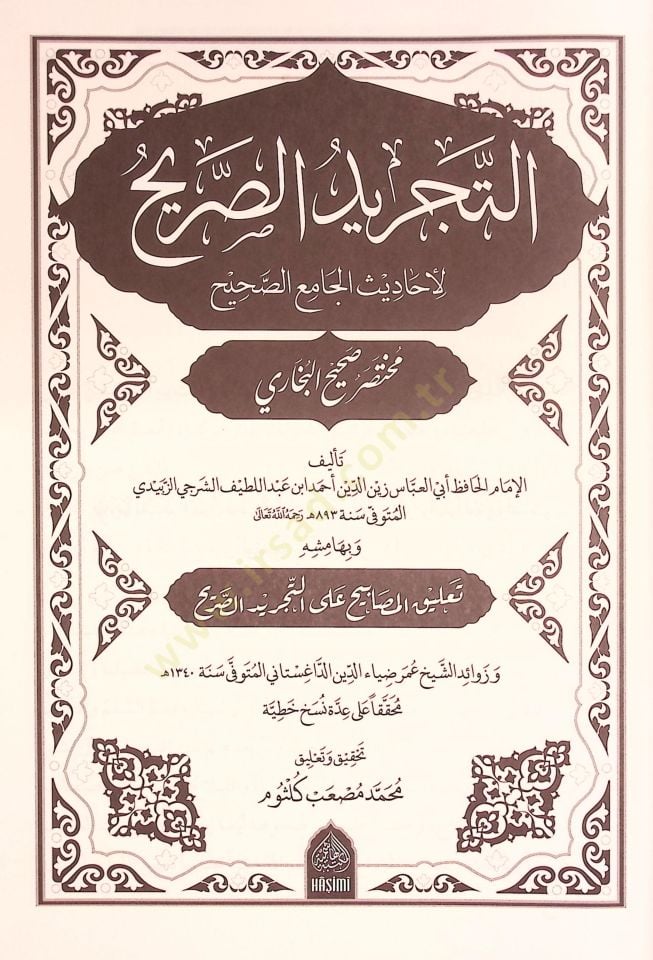 التَّجْرِيدُ الصَّرِيحُ
لِأَحَادِيثِ الجَامِعِ الصَّحِيْحِ
مُخْتَصَرُ صَحِيحِ البُخَارِي
تَأليف
الإمَام الحَافِظ أبي العبَّاس زين الدِّين أحمَد ابن عَبد اللطيف الشرجي الزَّبيْدي
المُتَوفّى سَنَة ٨٩٣هـ رَحِمَهُ اللَّهُ تَعَالَى
وَبِهَامِشِهِ
تَعليق المصَابيح عَلى التَّجريد الصَّريح
وَزوَائد الشَّيخ عُمَر ضيَاء الدّين الدَّاغستَاني المُتَوفَّى سَنَة ١٣٤٠هـ
مُحَقَّقاً عَلى عِدَّة نُسَخ خَطيَّة
تحقيق وَتعليق
مُحَمَّد مُصْعَب كُلْثُوم
HÂŞİMİ
www.irsad.com.tr